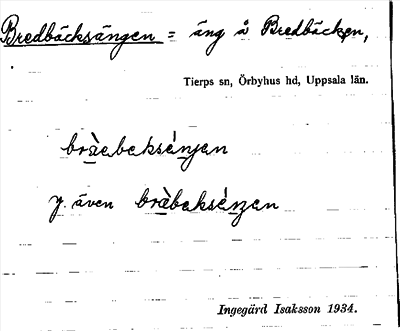 Bredbäcksängen = äng å Bredbäcken,
Tierps sn, Örbyhus hd, Uppsala län.
bràebeksénjen
J. även bràbeksénjen
Ingegärd Isaksson 1934.